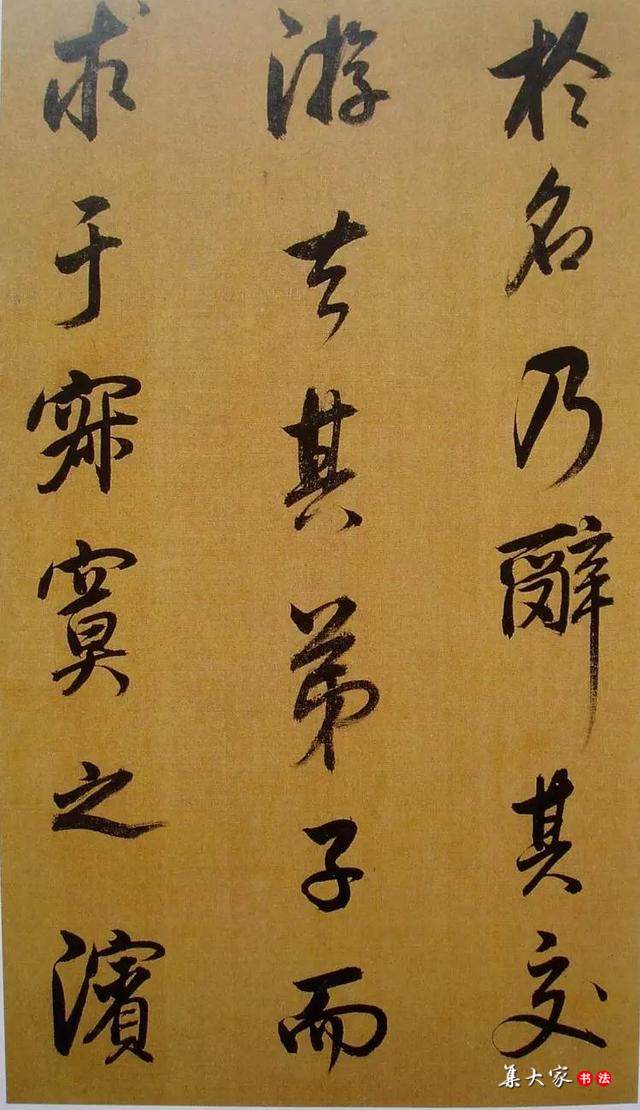 於名乃辭其交
游去其弟子而
求于寂寞之濱
集大家书法